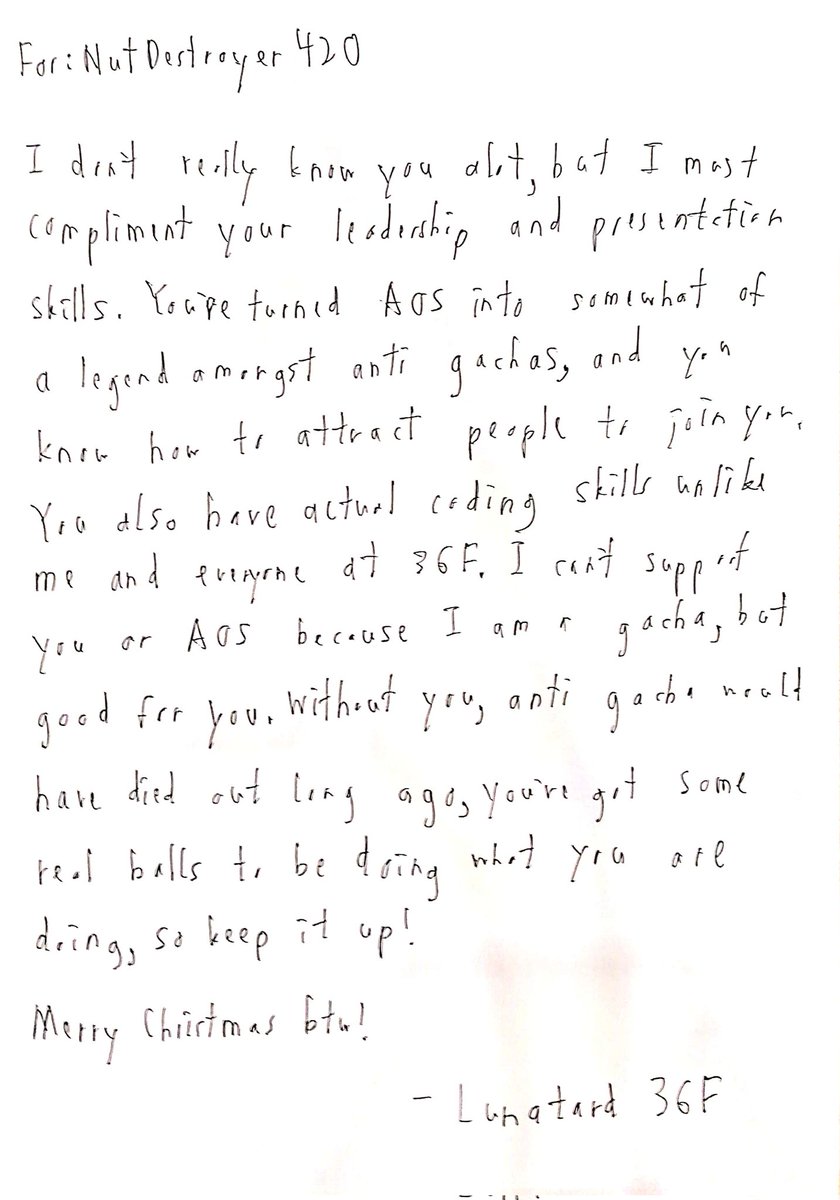 For: NutDestroyer 420
I don't really know you alot, but I must
compliment your leadership and presentation
skills. You're turned AOS into somewhat of
a legend amongst anti gachas, and you
know how to attract people to join you.
You also have actual coding skills unlike
me and everyone at 36F. I can't support
you or AOS because I am a gacha, but
good for you. Without you, anti gacha would
have died out long ago, you're got some
real balls to be doing what you are
doing, so keep it up!
Merry Christmas btw!
- Lunatard 36F